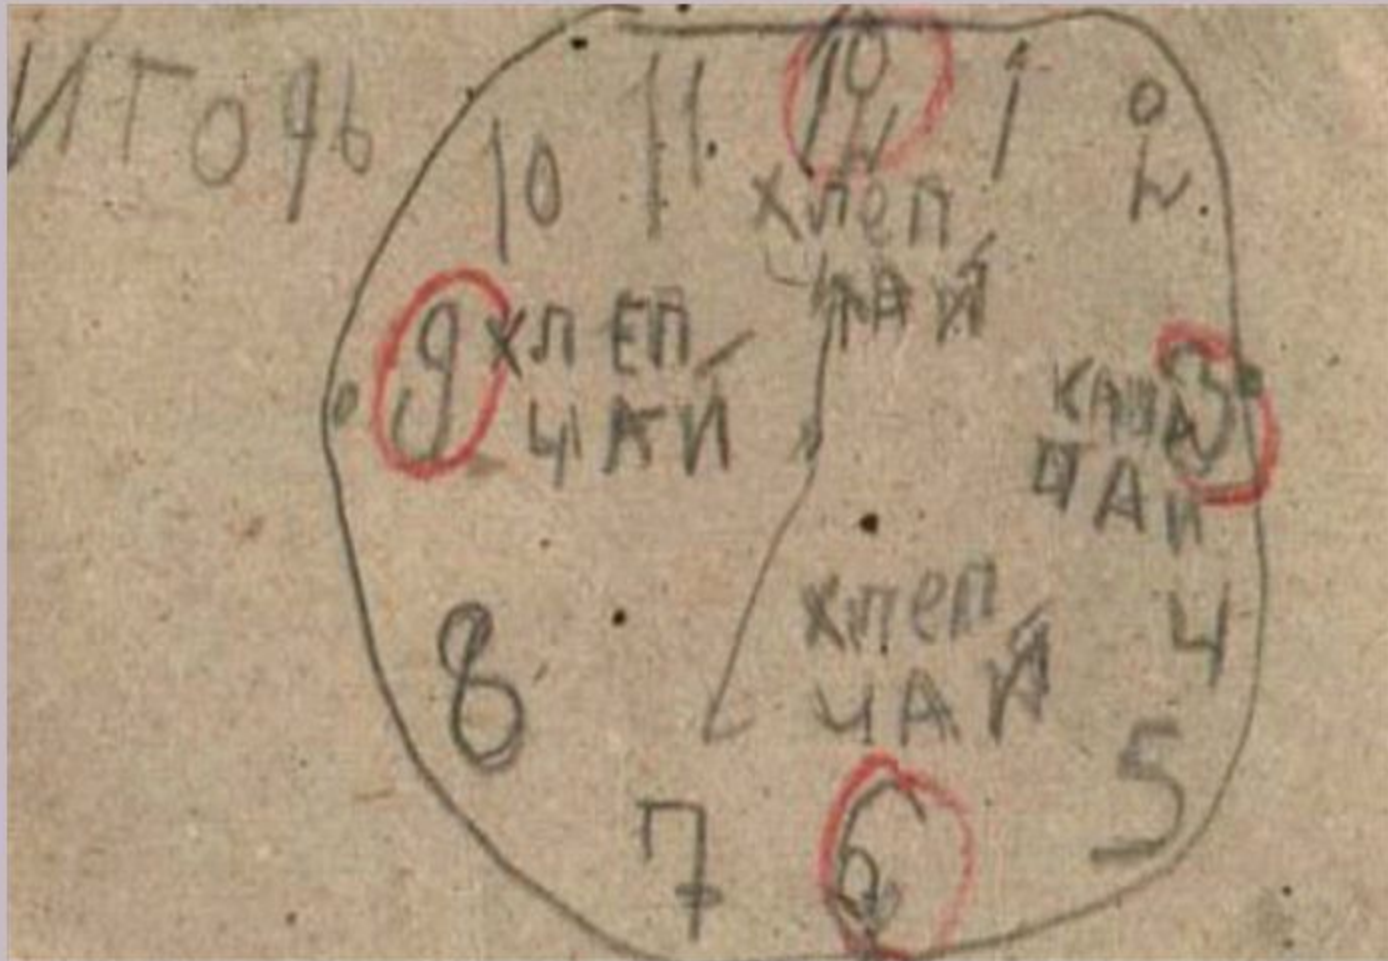 ИГОРЬ
10
11
12
1
2
ХЛЕП
ЧАЙ
9 ХЛЕП
ЧАЙ
КАША 3
ЧАЙ
ХЛЕП
ЧАЙ
4
8
5
7
6